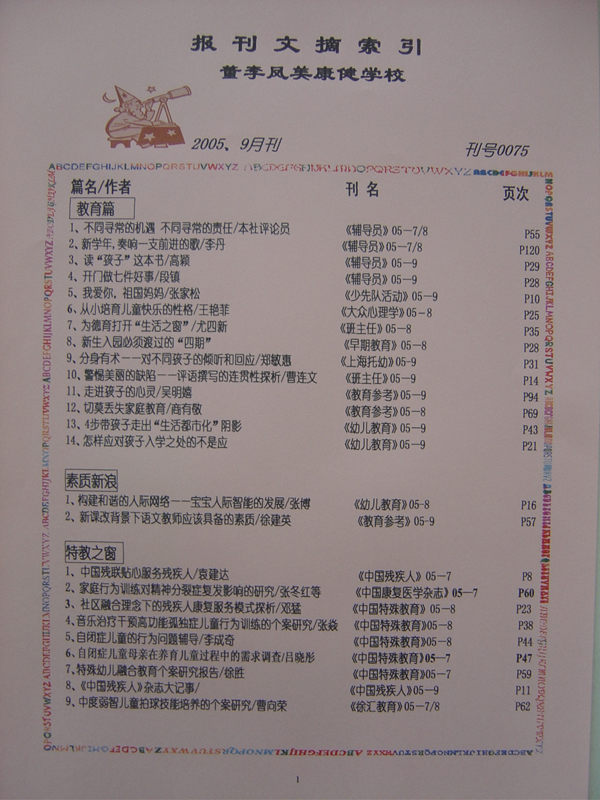 报刊文摘索引
董李凤美康健学校
2005、9月刊 刊号0075
ABCDEFGHIJKLMNOPQRSTUVWXYZ
篇名/作者 刊名 页次
教育篇
1、不同寻常的机遇 不同寻常的责任/本社评论员 《辅导员》05-7/8 P55
2、新学年,奏响一支前进的歌/李丹 《辅导员》05-7/8 P120
3、读“孩子”这本书/高颖 《辅导员》05-9 P29
4、开门做七件好事/段镇 《辅导员》05-9 P28
5、我爱你, 祖国妈妈/张家松 《少先队活动》05-9 P10
6、从小培育儿童快乐的性格/王艳菲 《大众心理学》05-8 P25
7、为德育打开“生活之窗”/尤四新 《班主任》05-8 P35
8、新生入园必须渡过的“四期” 《早期教育》05-8 P28
9、分身有术——对不同孩子的倾听和回应/郑敏惠 《上海托幼》05-9 P31
10、警惕美丽的缺陷——评语撰写的连贯性探析/曹连文 《班主任》05-9 P14
11、走进孩子的心灵/吴明嬉 《教育参考》05-9 P94
12、切莫丢失家庭教育/商有敬 《教育参考》05-8 P69
13、4步带孩子走出“生活都市化”阴影 《幼儿教育》05-9 P43
14、怎样应对孩子入学之处的不是应 《幼儿教育》05-9 P21
素质新浪
1、构建和谐的人际网络——宝宝人际智能的发展/张博 《幼儿教育》05-8 P16
2、新课改背景下语文教师应该具备的素质/徐建英 《教育参考》05-9 P57
特教之窗
1、中国残联贴心服务残疾人/袁建达 《中国残疾人》05-7 P8
2、家庭行为训练对精神分裂症复发影响的研究/张冬红等 《中国康复医学杂志》05-7 P60
3、社区融合理念下的残疾人康复服务模式探析/邓猛 《中国特殊教育》05-8 P23
4、音乐治疗干预高功能孤独症儿童行为训练的个案研究/张焱 《中国特殊教育》05-8 P38
5、自闭症儿童的行为问题辅导/李成奇 《中国特殊教育》05-8 P44
6、自闭症儿童母亲在养育儿童过程中的需求调查/吕晓彤 《中国特殊教育》05-7 P47
7、特殊幼儿融合教育个案研究报告/徐胜 《中国特殊教育》05-7 P59
8、《中国残疾人》杂志大记事/ 《中国残疾人》05-9 P11
9、中度弱智儿童拍球技能培养的个案研究/曹向荣 《徐汇教育》05-7/8 P62
1